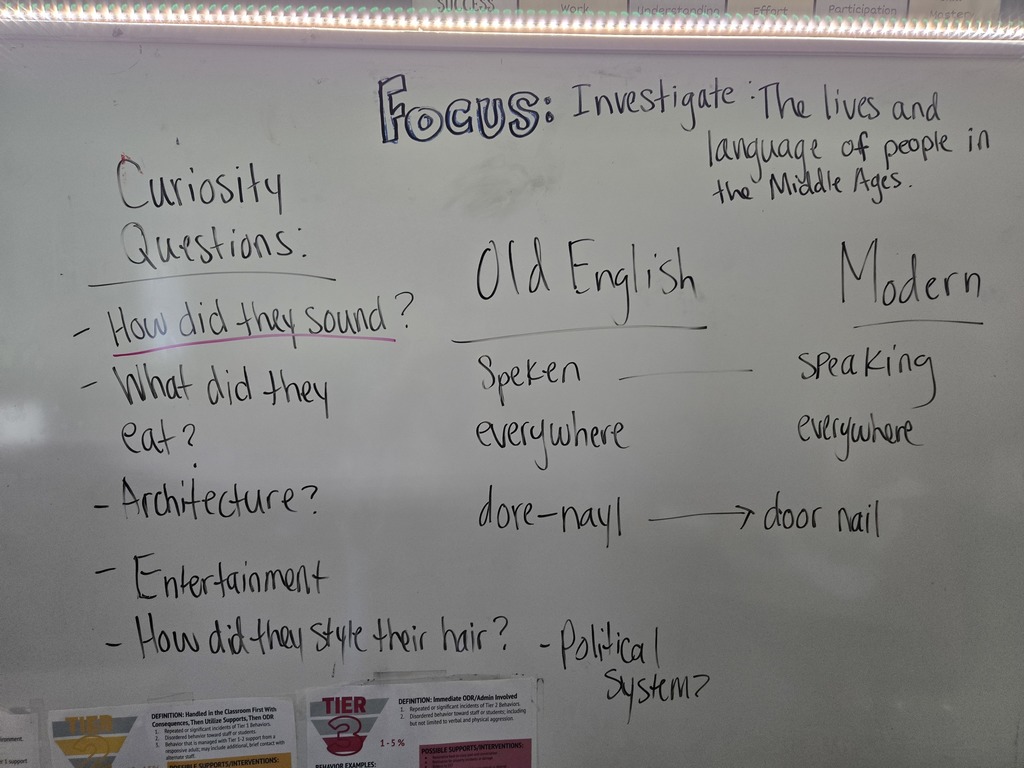 SUCCESS
Work
Understanding
Effort
Participation
Master
FOCUS: Investigate: The lives and
language of people in
the Middle Ages.
Curiosity
Questions:
- How did they sound?
- What did they
eat?
- Architecture?
- Entertainment
- How did they style their hair?
- Political
System?
Old English
Modern
Speken — speaking
everywhere everywhere
dore-nayl → door nail
TIER
2
DEFINITION: Handled in the Classroom First With
Consequences, Then Utilize Supports, Then ODR
1. Repeated or significant incidents of Tier 1 Behaviors.
2. Disordered behavior toward staff or students.
3. Behavior that is managed with Tier 1-2 support from a
responsive adult; may include additional, brief contact with
alternate staff.
POSSIBLE SUPPORTS/INTERVENTIONS:
TIER
3
1 - 5 %
DEFINITION: Immediate ODR/Admin Involved
1. Repeated or significant incidents of Tier 2 Behaviors.
2. Disordered behavior toward staff or students; including
but not limited to verbal and physical aggression.
BEHAVIOR EXAMPLES:
POSSIBLE SUPPORTS/INTERVENTIONS: